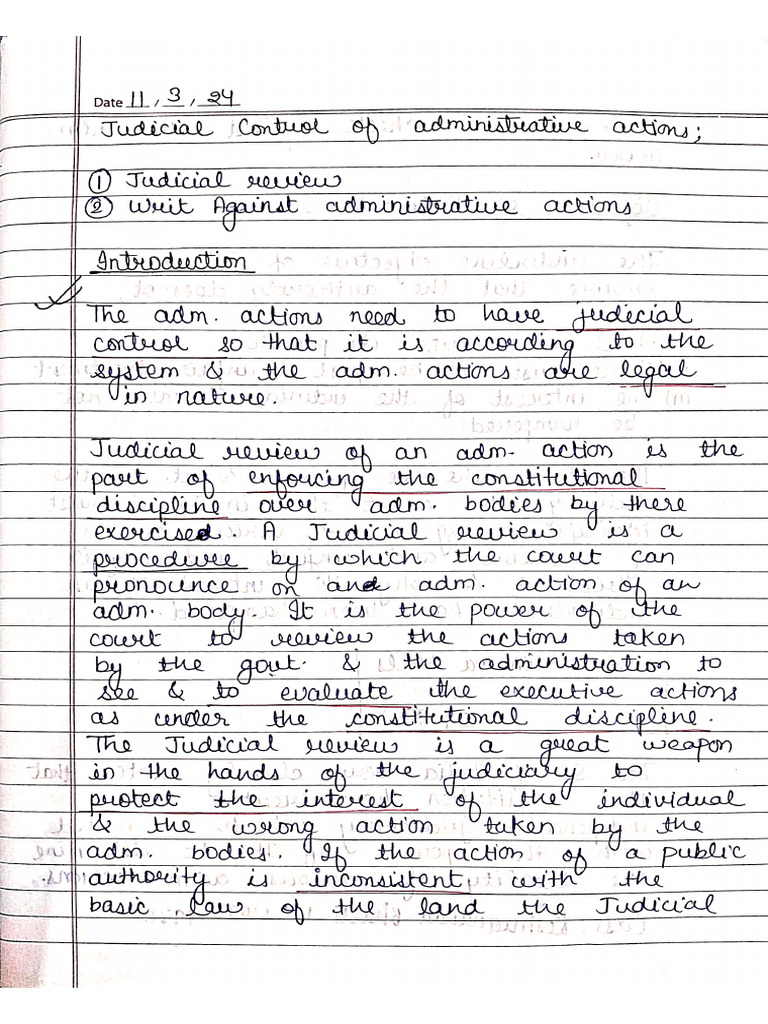 Date 11 / 3 / 24
Judicial Control of administrative actions;
① Judicial review
② Writ Against administrative actions
Introduction
The adm. actions need to have judicial
control so that it is according to the
system & the adm. actions are legal
in nature.
Judicial review of an adm. action is the
part of enforcing the constitutional
discipline over adm. bodies by there
exercised. A Judicial review is a
procedure by which the court can
pronounce on and adm. action of an
adm. body. It is the power of the
court to review the actions taken
by the govt. & the administration to
see & to evaluate the executive actions
as under the constitutional discipline.
The Judicial review is a great weapon
in the hands of the judiciary to
protect the interest of the individual
& the wrong action taken by the
adm. bodies. If the action of a public
authority is inconsistent with the
basic law of the land the Judicial